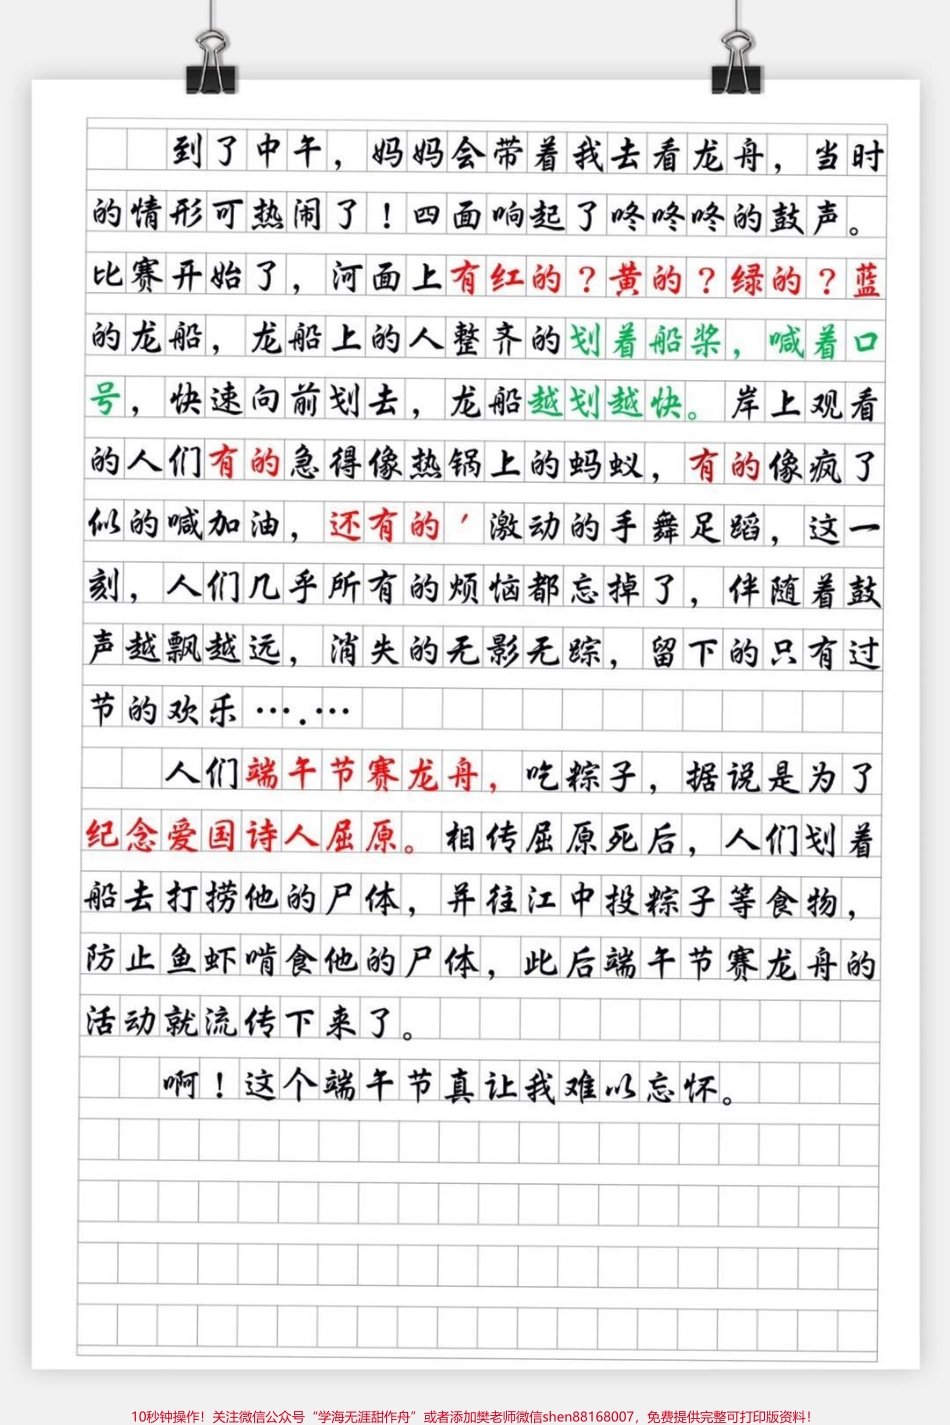 到了中午，妈妈会带着我去看龙舟，当时
的情形可热闹了！四面响起了咚咚咚的鼓声。
比赛开始了，河面上有红的？黄的？绿的？蓝
的龙船，龙船上的人整齐的划着船桨，喊着口
号，快速向前划去，龙船越划越快。岸上观看
的人们有的急得像热锅上的蚂蚁，有的像疯了
似的喊加油，还有的＇激动的手舞足蹈，这一
刻，人们几乎所有的烦恼都忘掉了，伴随着鼓
声越飘越远，消失的无影无踪，留下的只有过
节的欢乐….…
人们端午节赛龙舟，吃粽子，据说是为了
纪念爱国诗人屈原。相传屈原死后，人们划着
船去打捞他的尸体，并往江中投粽子等食物，
防止鱼虾啃食他的尸体，此后端午节赛龙舟的
活动就流传下来了。
啊！这个端午节真让我难以忘怀。
10秒钟操作！关注微信公众号“学海无涯甜作舟”或者添加樊老师微信shen88168007，免费提供完整可打印版资料！